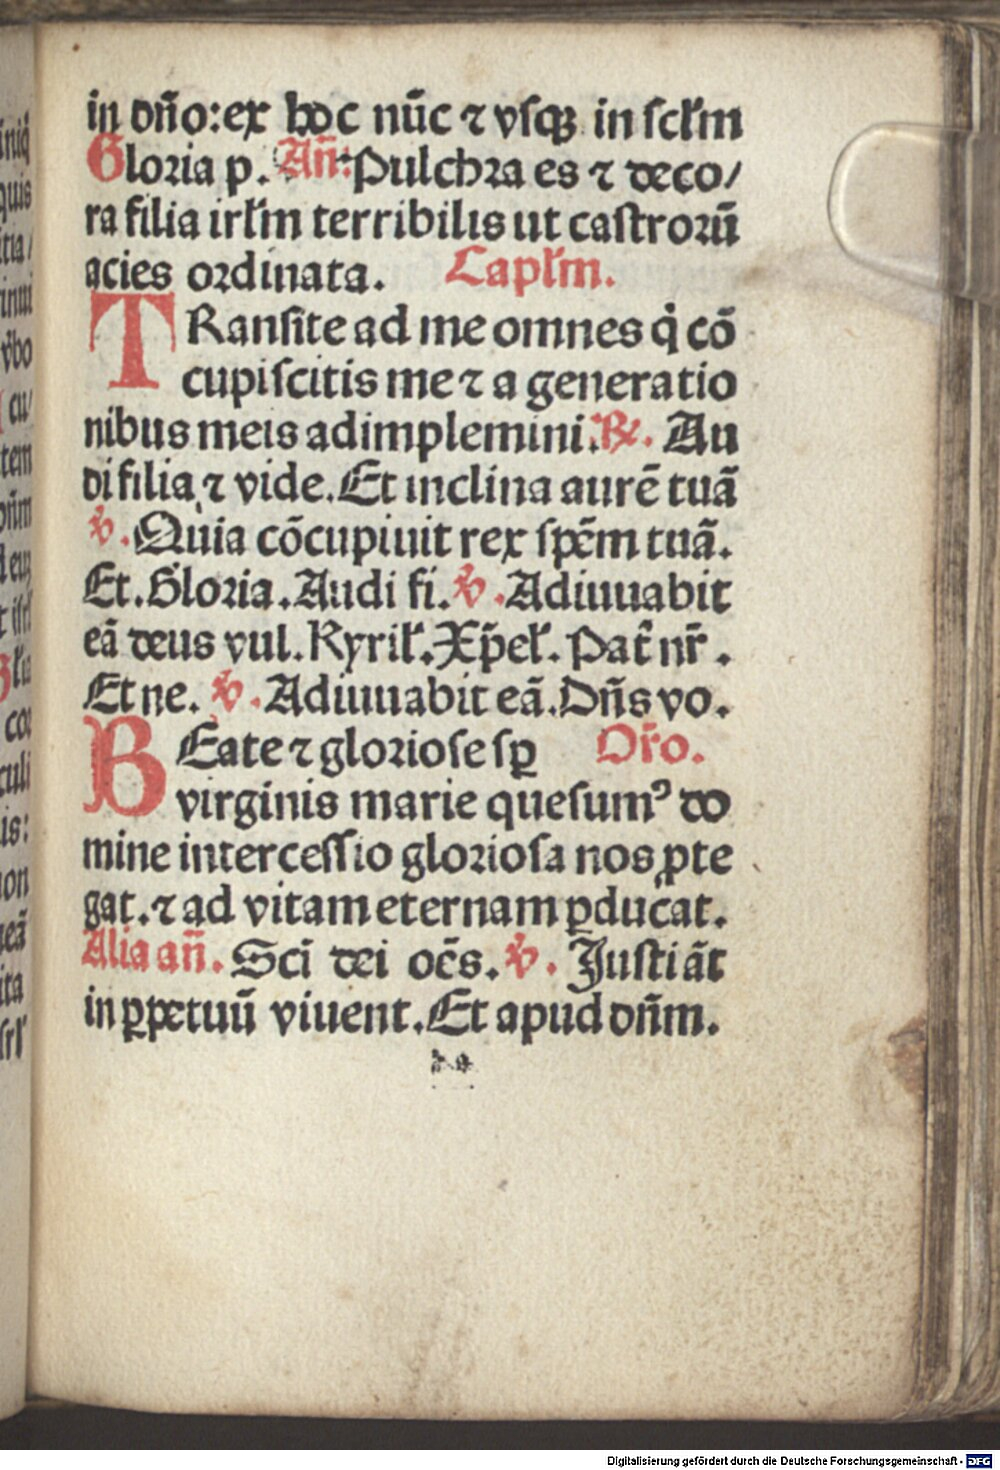 in dn̄o: ex hoc nūc ⁊ vſqꝫ in ſcłm
Gloria p. An̄: Pulchra es ⁊ deco/
ra filia irłm terribilis ut caſtrorū
acies ordinata. Capłm.
TRanſite ad me omnes q̇ cō
cupiſcitis me ⁊ a generatio
nibus meis adimplemini. ℟. Au
di filia ⁊ vide. Et inclina aurē tuā
℣. Quia cōcupiuit rex ſpēm tuā.
Et. Gloria. Audi fi. ℣. Adiuuabit
eā deus vul. Kyrił. Xp̄eł. Pat̄ nr̄.
Et ne. ℣. Adiuuabit eā. Dn̄s vo.
BEate ⁊ glorioſe ſꝑ Or̄o.
virginis marie queſumꝰ do
mine interceſſio glorioſa nos ꝓte
gat. ⁊ ad vitam eternam ꝑducat.
Alia an̄. Scī dei oēs. ℣. Juſti āt
in ꝑpetuū viuent. Et apud dn̄m.
Digitalisierung gefördert durch die Deutsche Forschungsgemeinschaft - DFG